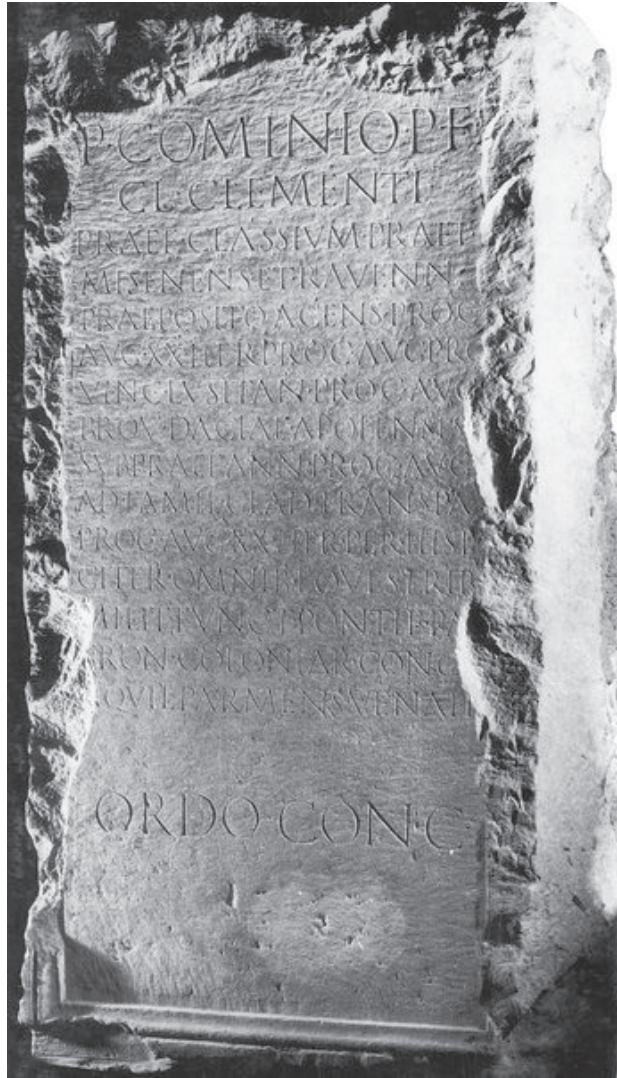 P·COMINIO·P·F
CL·CLEMENTI
PRAEF·CLASSIVM·PRAET
MISENENS·ET·RAVENN
PRAEPOSITO·A·CENS·PROC
AVG·XX·HER·PROC·AVG·PRO
VINC·LVSITAN·PROC·AVG
PROV·DACIAE·APOLENS
SVBPRAEF·ANN·PROC·AVG
AD·FAMIL·GLAD·TRANSPA
PROC·AVG·XX·HER·PER·HISP
CITER·OMNIB·EQVESTRIB
MILIT·FVNCT·PONTIF·PA
TRON·COLONIAR·CONC
AQVIL·PARMENS·VENAF
ORDO·CONC